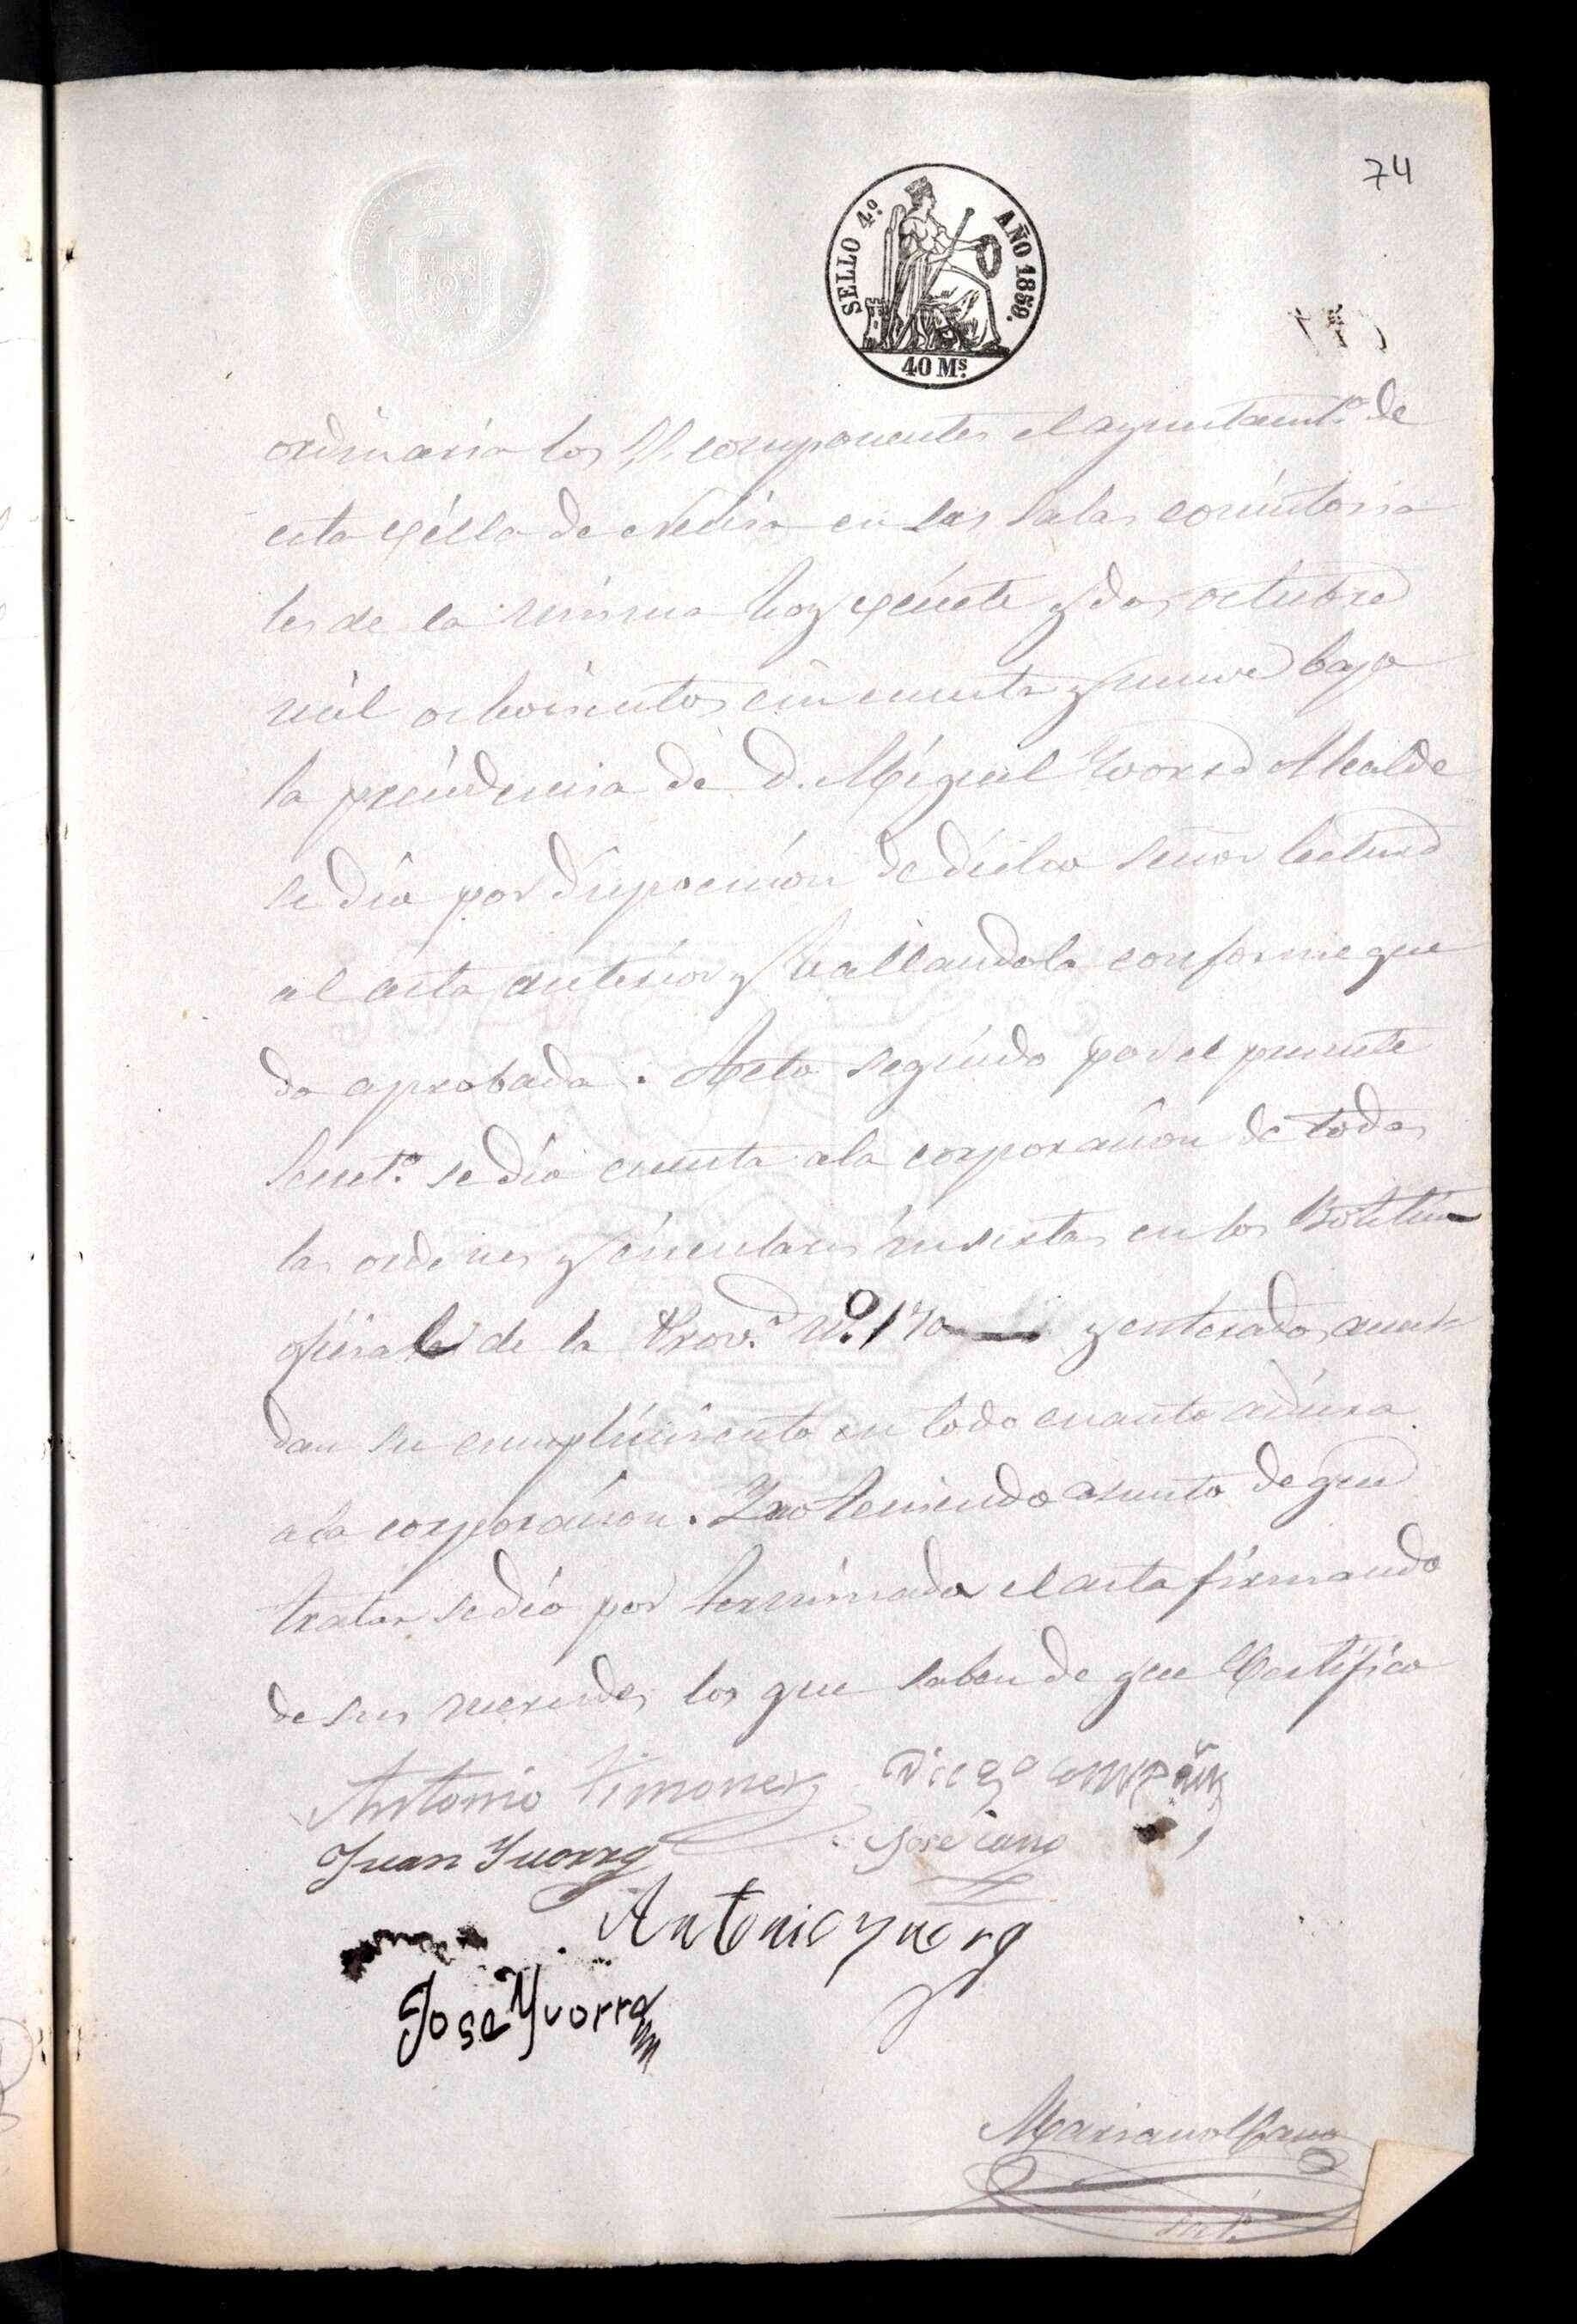 74
SELLO 4.º AÑO 1859.
40 Ms.
ordinaria los SS. componentes el ayuntamt.º de
esta Villa de en las salas concistoria
les de la misma hoy veinte y dos octubre
mil ochocientos cincuenta y nueve bajo
la precidencia de D. Miguel Yvorra Alcalde
se dió por disposicion de dicho señor lectura
al acta anterior y hallandola conforme que
do aprobada. Acto seguido por el presente
Secret.º se dio cuenta a la corporacion de todas
las ordenes y circulares insertas en los Boletin
oficiales de la Prov.ª Nº. 170 y enterados acuer
dan su cumplimiento en todo cuanto
a la corporacion. Y no teniendo asunto de que
tratar se dió por terminada el acta firmando
de sus mercedes los que saben de que Certifico
Antonio Ximenez Diego
Juan Yvorra Jose Cano
Antonio Yvorra
Jose Yvorra
Mariano Cano
Sect.º